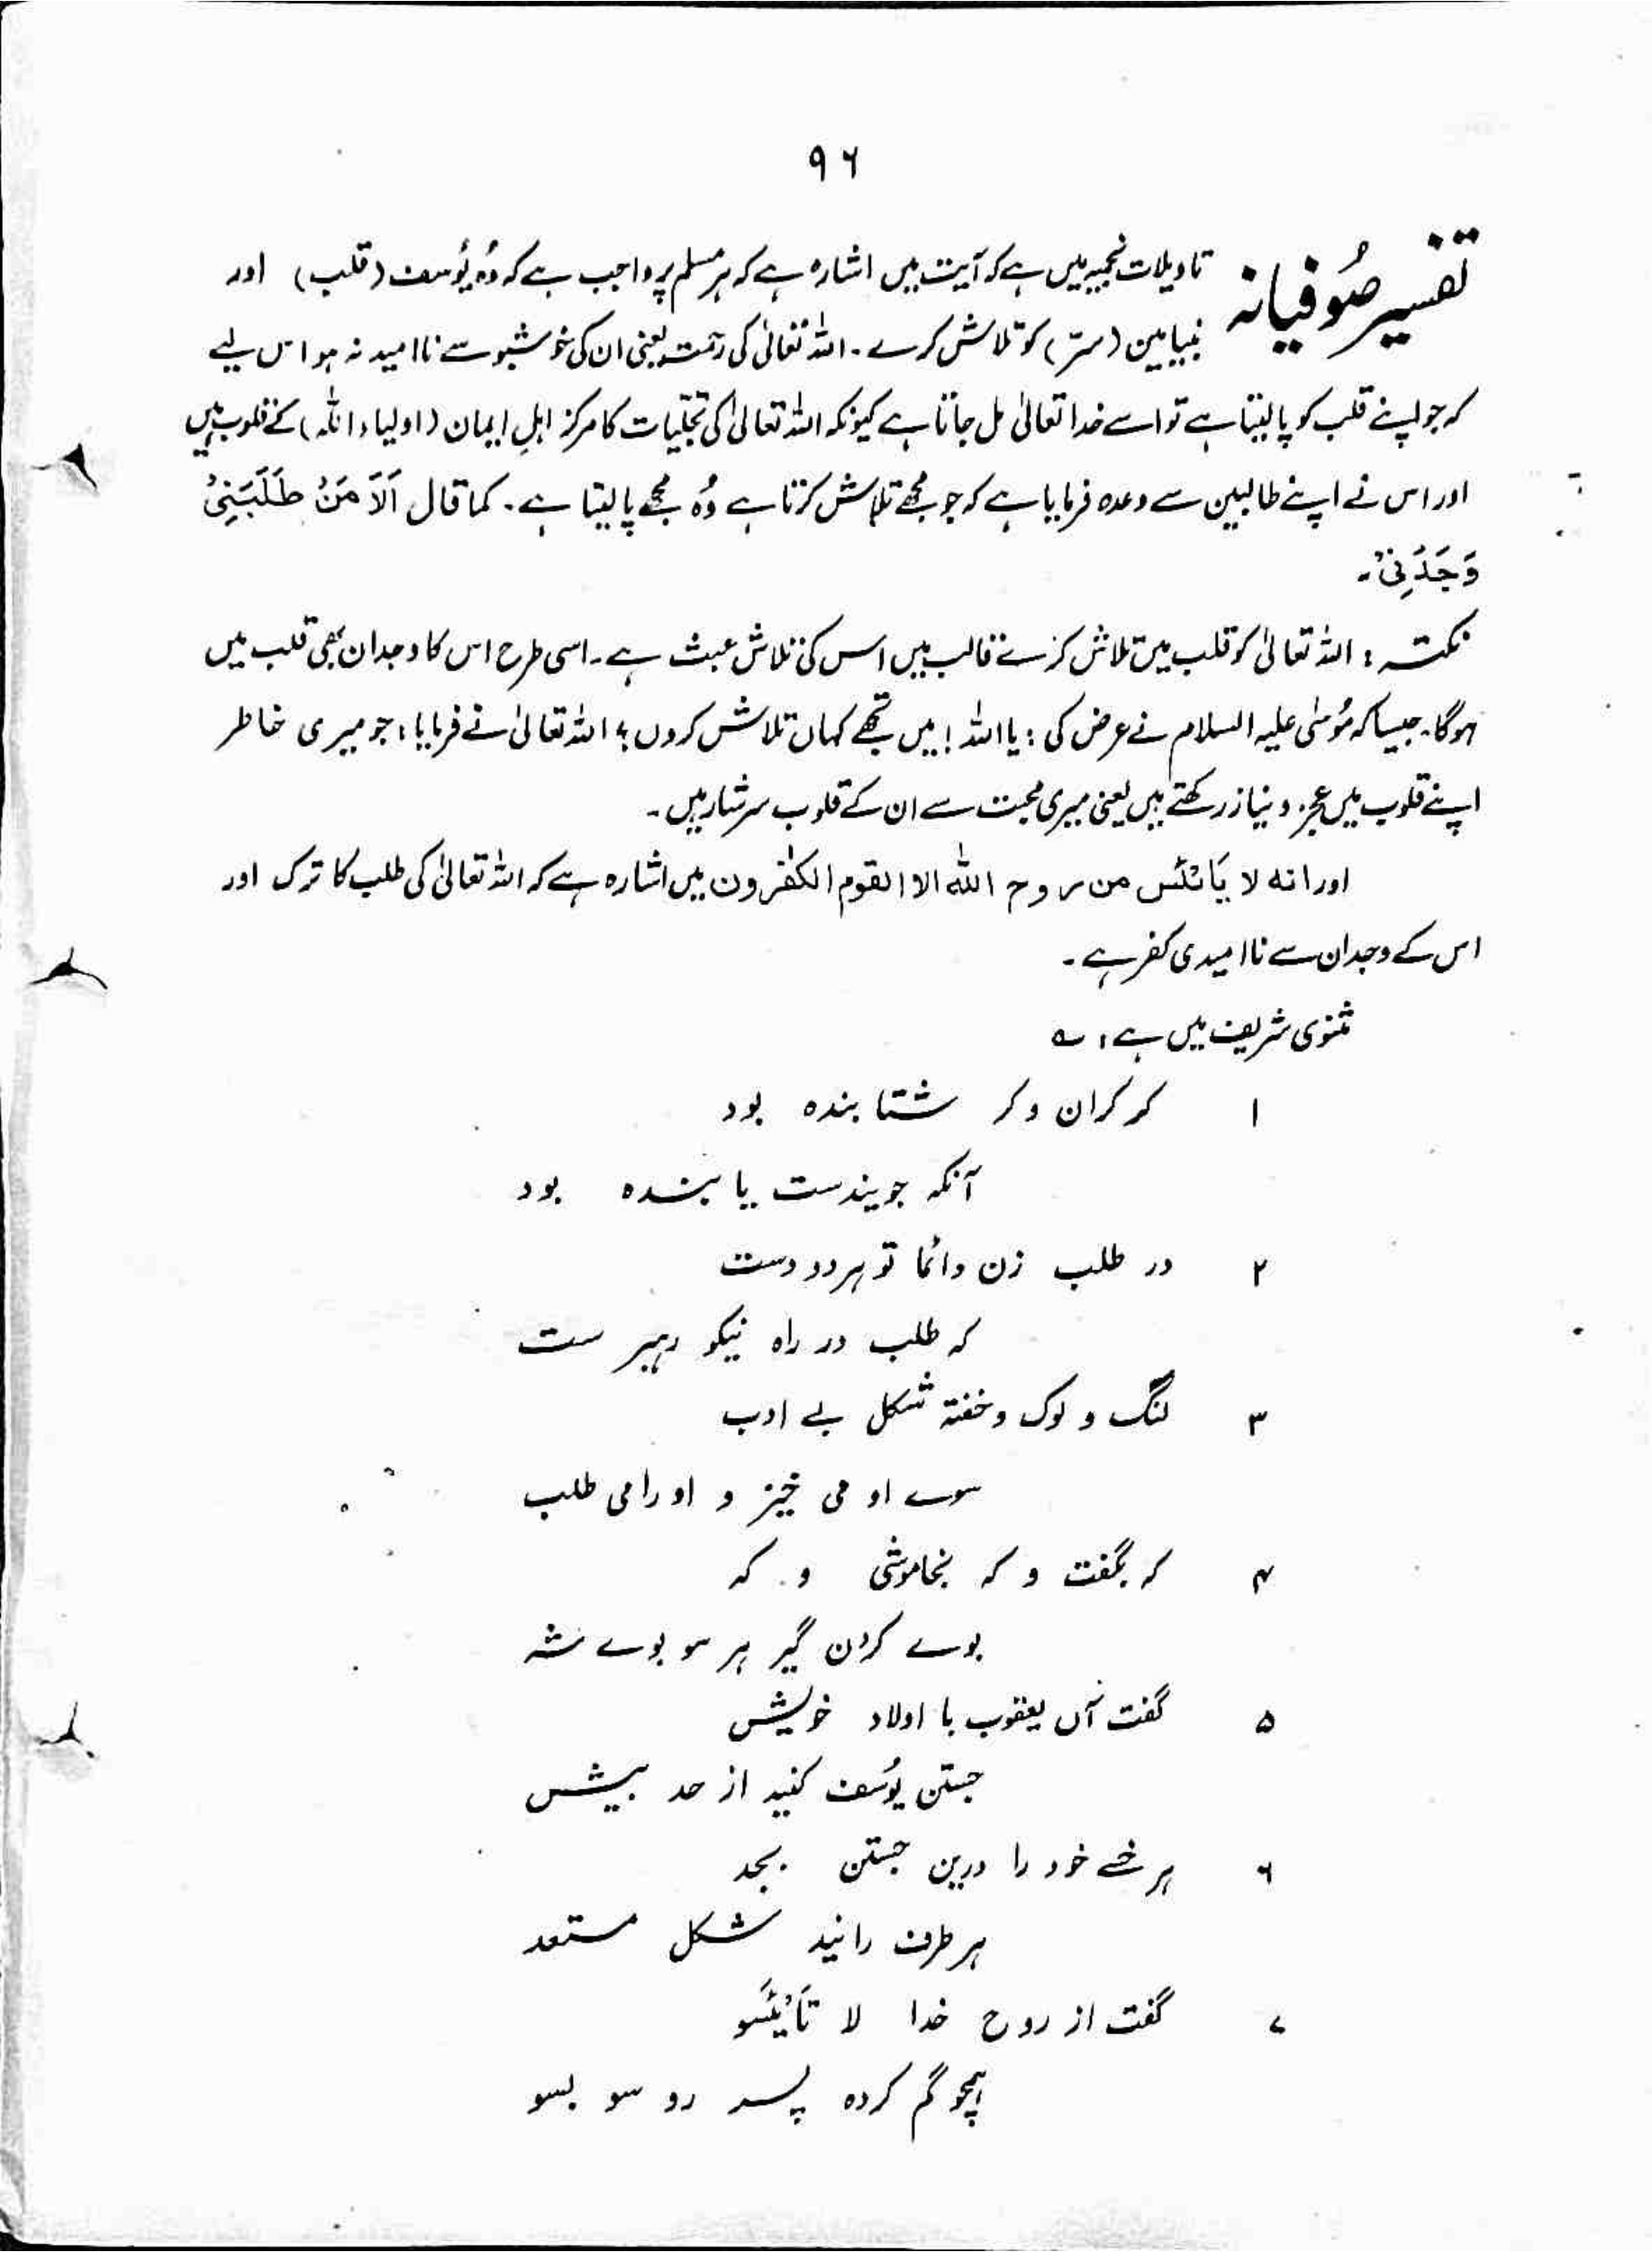 ۹۶
تفسیر صُوفیانہ
تاویلات نجمیہ میں ہے کہ آیت میں اشارہ ہے کہ ہر مسلم پر واجب ہے کہ وُہ یُوسف (قلب) اور
بنیامین (سِرّ) کو تلاش کرے۔ اللہ تعالیٰ کی رحمت یعنی ان کی خوشبو سے ناامید نہ ہو اس لیے
کہ جو اپنے قلب کو پالیتا ہے تو اسے خدا تعالیٰ مل جاتا ہے کیونکہ اللہ تعالیٰ کی تجلّیات کا مرکز اہلِ ایمان (اولیاء اللہ) کے قلوب ہیں
اور اس نے اپنے طالبین سے وعدہ فرمایا ہے کہ جو مجھے تلاش کرتا ہے وُہ مجھے پالیتا ہے۔ کما قال اَلَا مَنْ طَلَبَنِیْ
وَجَدَنِیْ۔
نکتہ : اللہ تعالیٰ کو قلب میں تلاش کرنے قالب میں اس کی تلاش عبث ہے۔ اسی طرح اس کا وجدان بھی قلب میں
ہوگا۔ جیسا کہ مُوسٰی علیہ السلام نے عرض کی : یا اللہ ! میں تجھے کہاں تلاش کروں ؟ اللہ تعالیٰ نے فرمایا : جو میری خاطر
اپنے قلوب میں عجز و نیاز رکھتے ہیں یعنی میری محبت سے ان کے قلوب سرشار ہیں۔
اور انہ لا یَائَس من روح اللہ الا القوم الکٰفرون میں اشارہ ہے کہ اللہ تعالیٰ کی طلب کا ترک اور
اس کے وجدان سے ناامیدی کفر ہے۔
مثنوی شریف میں ہے : ؎
۱ گر گران و گر شتابندہ بود
آنکہ جویندست یابندہ بود
۲ در طلب زن دائما تو ہر دو دست
کہ طلب در راہ نیکو رہبر ست
۳ لنگ و لوک و خفتہ شکل بے ادب
سوے او می خیز و او را می طلب
۴ کہ بگفت و کہ بخاموشی و کہ
بوے کردن گیر ہر سو بوے شہ
۵ گفت آں یعقوب با اولاد خویش
جستن یُوسف کنید از حد بیش
۶ ہر خسے خود را درین جستن بجد
ہر طرف رانید شکل مستعد
۷ گفت از روح خدا لا تَایْئَسُو
ہمچو گم کردہ پسر رو سو بسو